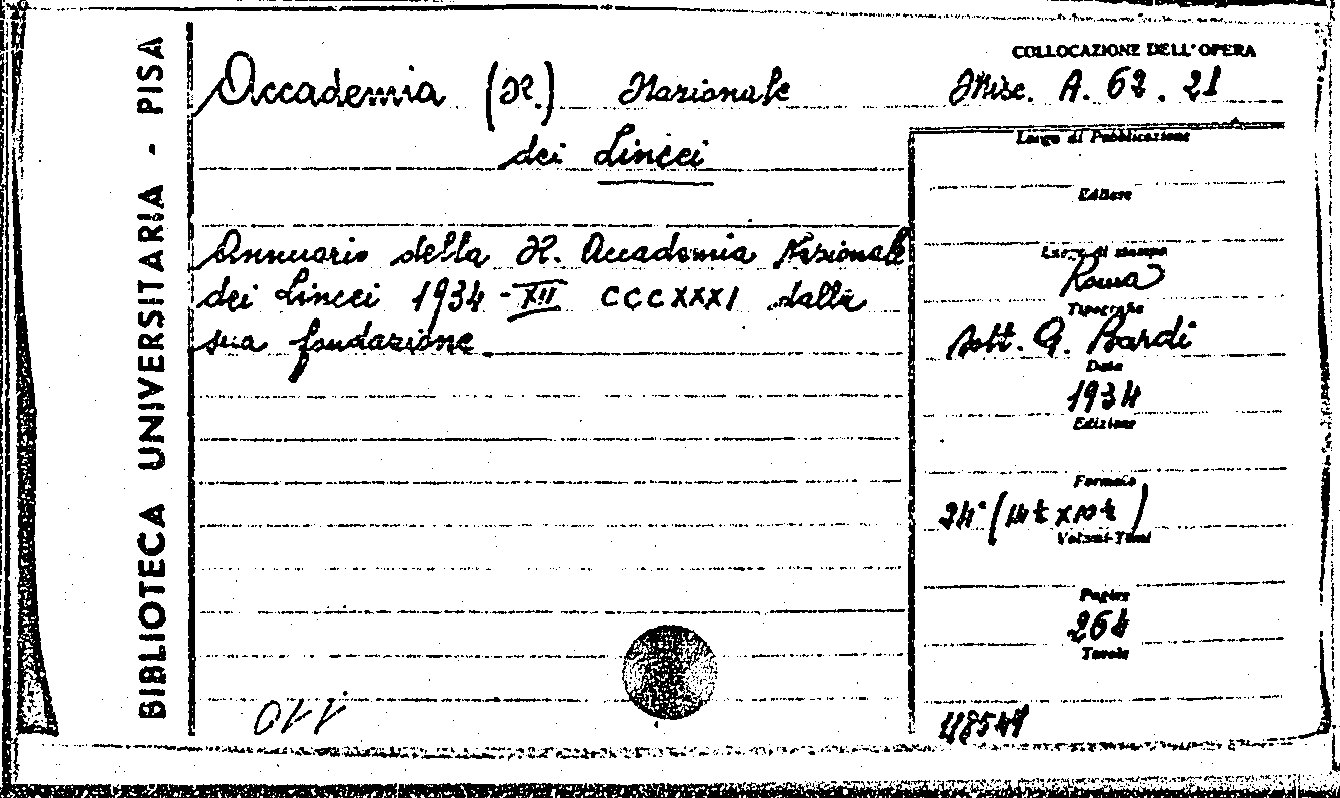 BIBLIOTECA UNIVERSITARIA - PISA
Accademia (R.) Nazionale
dei Lincei
Annuario della R. Accademia Nazionale
dei Lincei 1934-XII CCCXXXI dalla
sua fondazione
COLLOCAZIONE DELL'OPERA
Misc. A. 62. 21
Luogo di Pubblicazione
Editore
Luogo di stampa
Roma
Tipografia
Dott. G. Bardi
Data
1934
Edizione
Formato
24° (14½ x 10½)
Volumi-Tomi
Pagine
264
Tavole